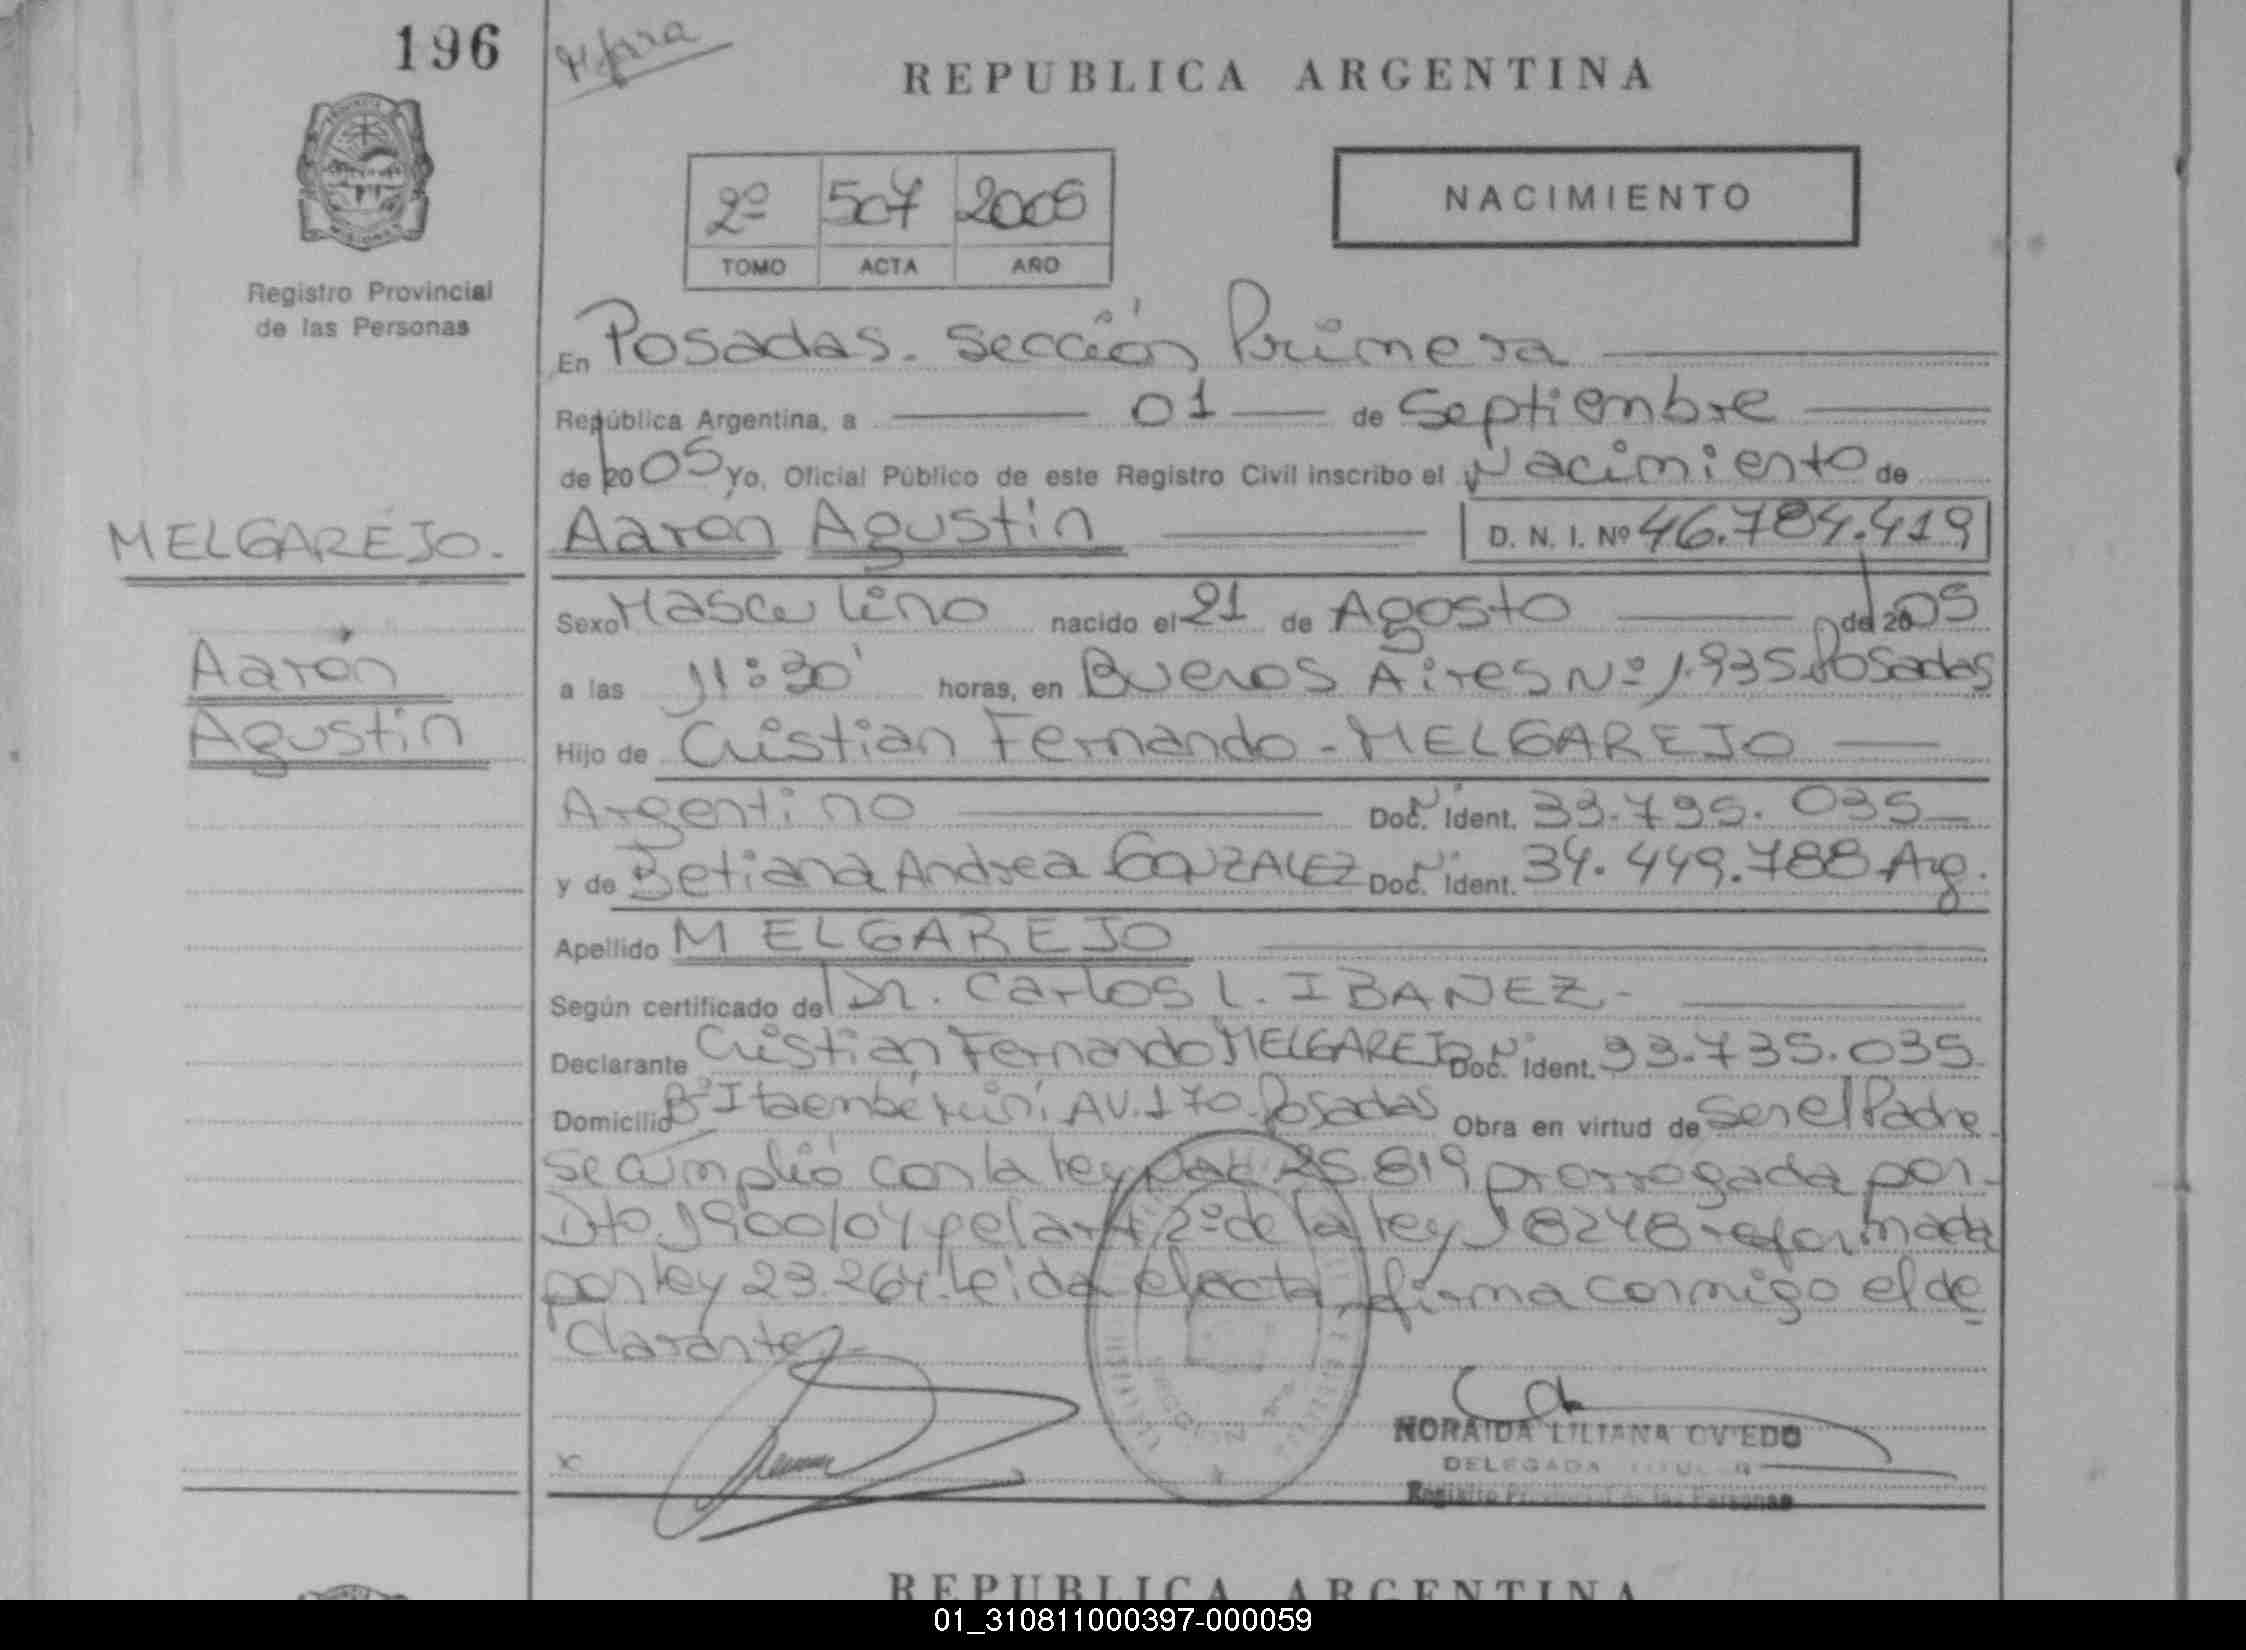 196
REPUBLICA ARGENTINA
NACIMIENTO
2º 507 2005
TOMO ACTA AÑO
Registro Provincial
de las Personas
En Posadas. Sección Primera
República Argentina, a 01 de Septiembre
de 2005 Yo, Oficial Público de este Registro Civil inscribo el Nacimiento de
MELGAREJO.
Aarón Agustin D. N. I. Nº 46.784.419
Sexo Masculino nacido el 21 de Agosto de 2005
Aarón
a las 11:30' horas, en Buenos Aires Nº 1.935. Posadas
Agustin
Hijo de Cristian Fernando - MELGAREJO
Argentino Doc. Ident. 33.795.035
y de Betiana Andrea GONZALEZ Doc. Ident. 34.449.788 Arg.
Apellido MELGAREJO
Según certificado del Dr. Carlos L. IBAÑEZ-
Declarante Cristian Fernando MELGAREJO Doc. Ident. 33.735.035
Domicilio Bº Itaembé miní AV. 170. Posadas Obra en virtud de ser el Padre
se cumplió con la ley 25.819 prorrogada por
Dto 1900/04 y el art 2º de la ley 18248 reformada
por ley 23.264. Leida el acta, firma conmigo el de
clarante.
x
NORAIDA LILIANA OVIEDO
DELEGADA TITULAR
Registro Provincial de las Personas
REPUBLICA ARGENTINA
01_310811000397-000059